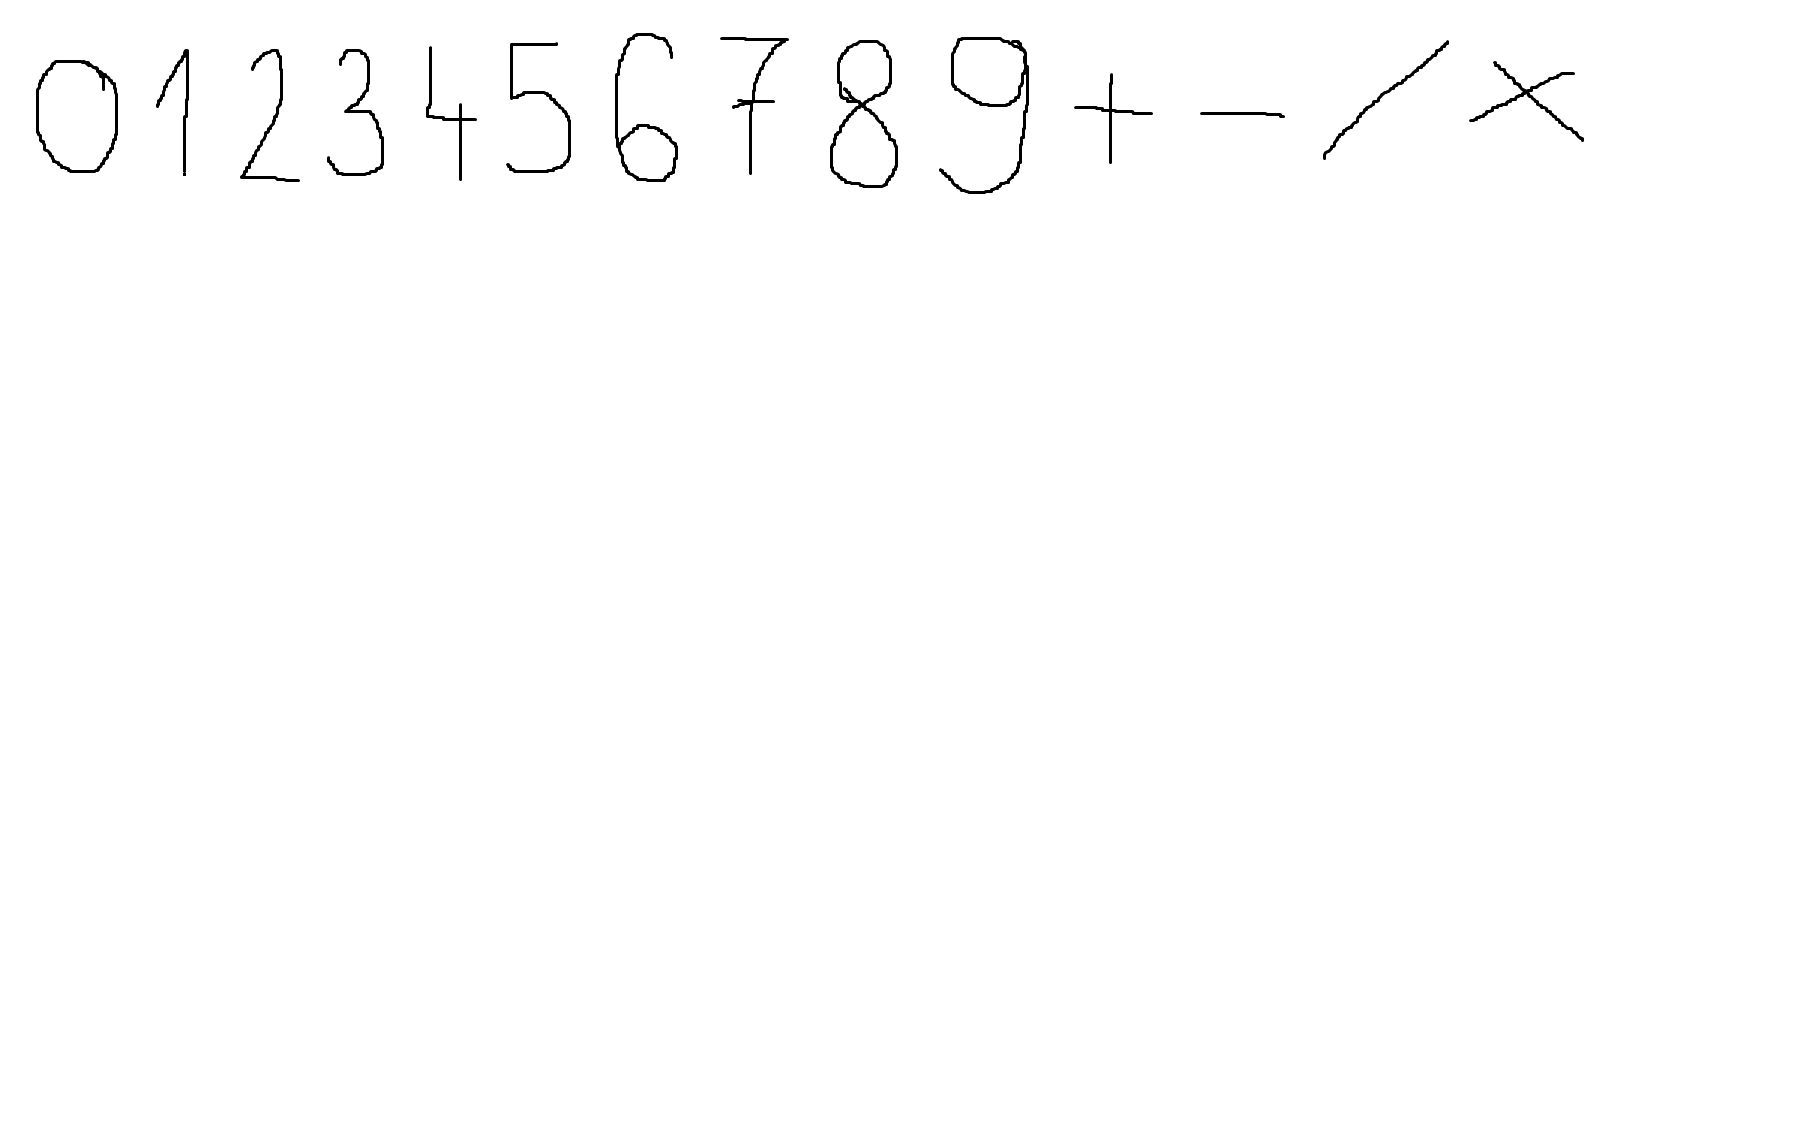 0 1 2 3 4 5 6 7 8 9 + - / ×